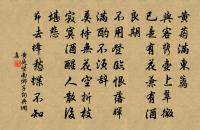 黄菊滿東籬
與客携壺上翠微
已是有花兼有酒
良期
不用登臨恨落暉
滿酌不須辭
莫待無花空折枝
寂寞酒醒人散後
堪悲
節去蜂愁蝶不知